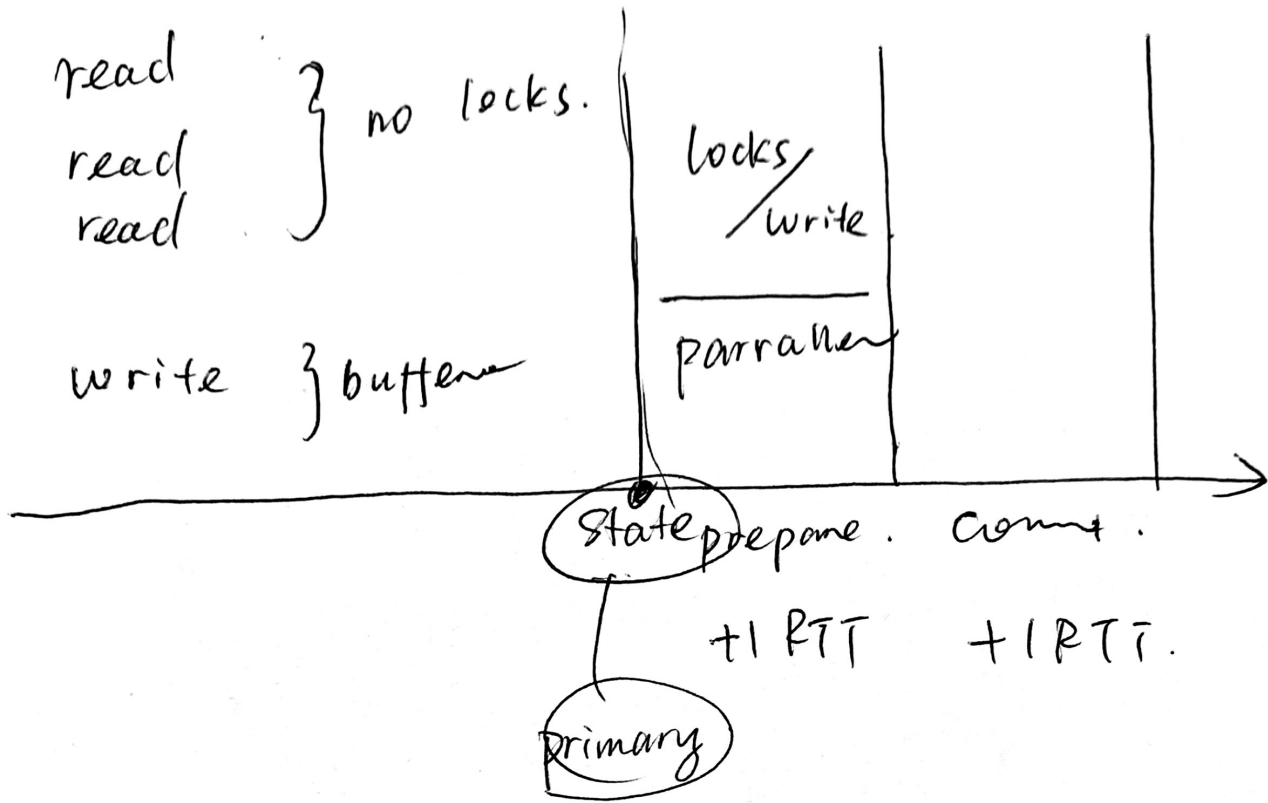 read
read
read
no locks.
write
buffer
locks/
write
parraller
state
prepare.
commt.
+1 RTT
+1 RTT.
primary